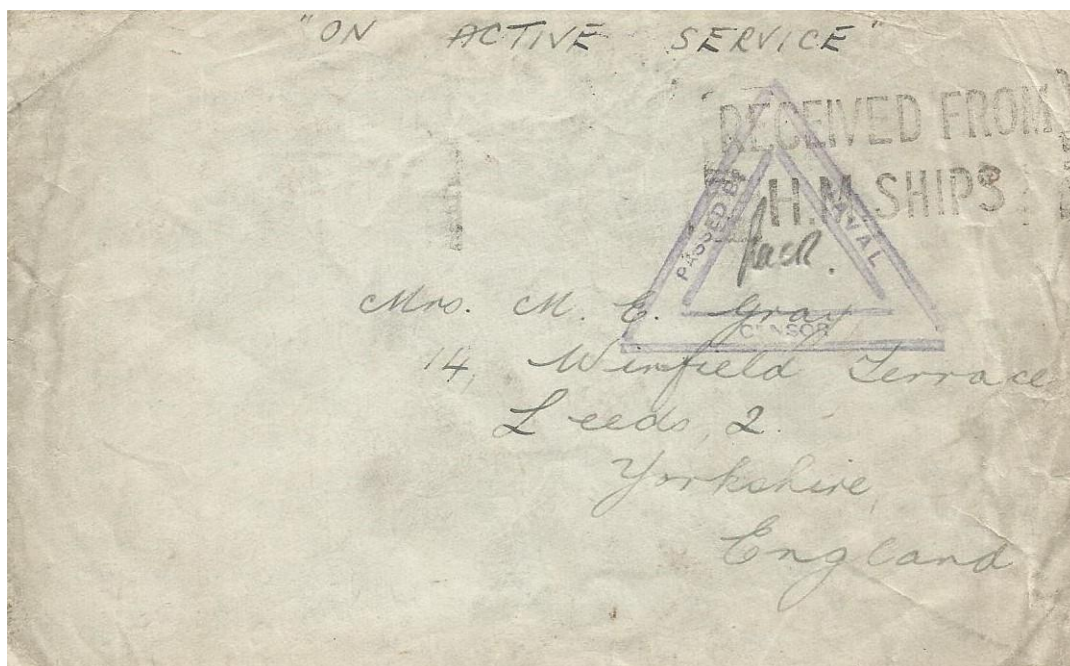 "ON ACTIVE SERVICE"
RECEIVED FROM
H.M. SHIPS
PASSED BY
NAVAL
CENSOR
Mrs. M. E. Gray
14, Winfield Terrace
Leeds, 2.
Yorkshire,
England